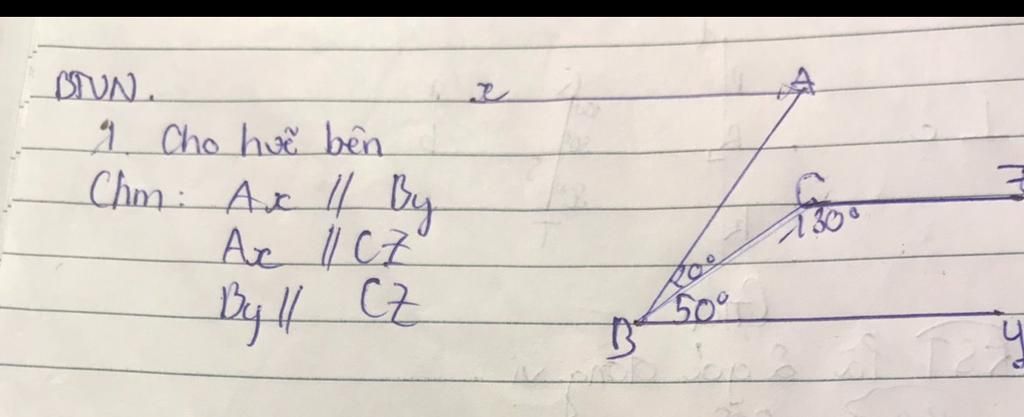 BTVN.
1. Cho hvẽ bên
Chm: Ax // By
Ax // CZ
By // CZ
x A
C Z
130°
20°
50°
B y